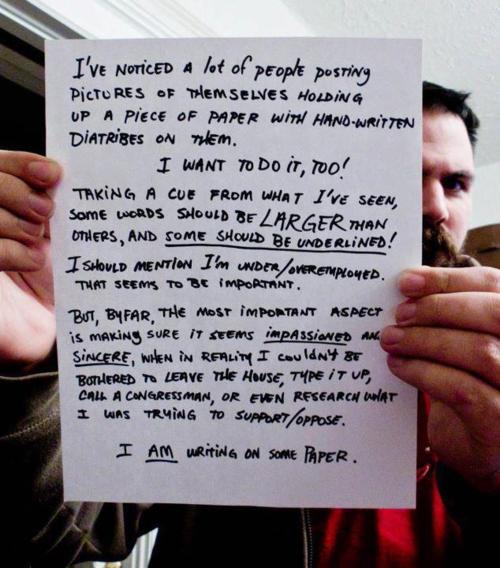 I'VE NOTICED A lot of people posting
PICTURES OF THEMSELVES HOLDING
UP A PIECE OF PAPER WITH HAND-WRITTEN
DIATRIBES ON THEM.
I WANT TO DO IT, TOO!
TAKING A CUE FROM WHAT I'VE SEEN,
SOME WORDS SHOULD BE LARGER THAN
OTHERS, AND SOME SHOULD BE UNDERLINED!
I SHOULD MENTION I'M UNDER/OVEREMPLOYED.
THAT SEEMS TO BE IMPORTANT.
BUT, BYFAR, THE MOST IMPORTANT ASPECT
IS MAKING SURE IT SEEMS IMPASSIONED AND
SINCERE, WHEN IN REALITY I COULDN'T BE
BOTHERED TO LEAVE THE HOUSE, TYPE IT UP,
CALL A CONGRESSMAN, OR EVEN RESEARCH WHAT
I WAS TRYING TO SUPPORT/OPPOSE.
I AM WRITING ON SOME PAPER.